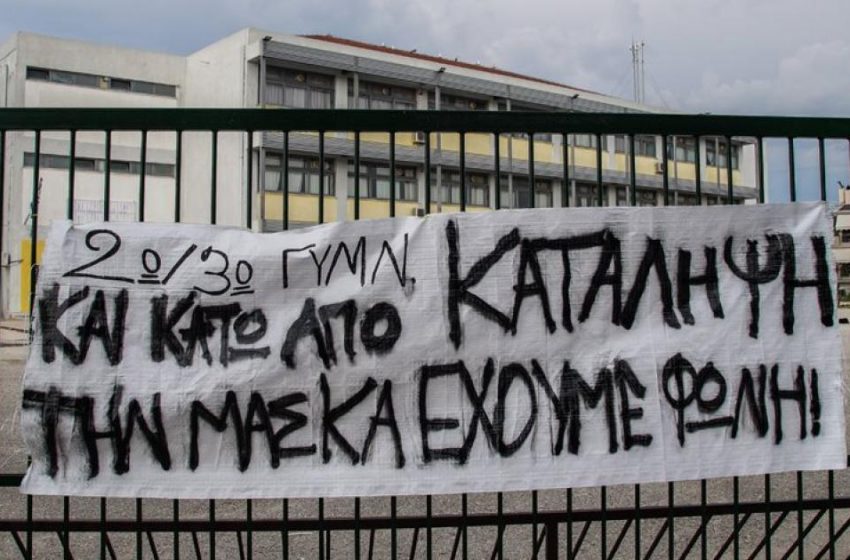 2ο/3ο ΓΥΜΝ. ΚΑΤΑΛΗΨΗ
ΚΑΙ ΚΑΤΩ ΑΠΟ
ΤΗΝ ΜΑΣΚΑ ΕΧΟΥΜΕ ΦΩΝΗ!